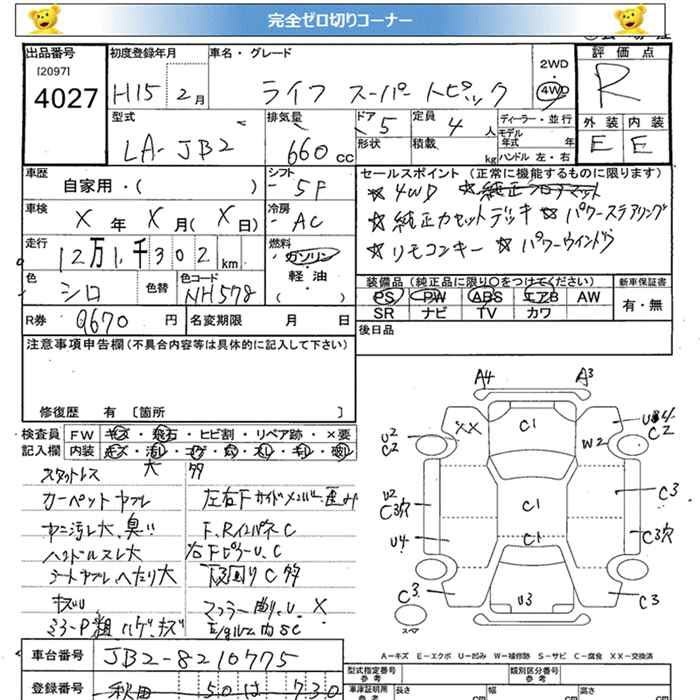 完全ゼロ切りコーナー
出品番号
[2097]
4027
初度登録年月
H15 2月
車名・グレード
ライフ スーパートピック
2WD
・
4WD
評価点
R
外装 内装
E E
型式
LA-JB2
排気量
660 cc
ドア 5
形状
定員 4 人
積載 kg
ディーラー・並行
モデル年式 年
ハンドル 左・右
車歴
自家用・( )
シフト
5F
セールスポイント (正常に機能するものに限ります)
☆4WD ☆純正フロアマット
☆純正カセットデッキ ☆パワーステアリング
☆リモコンキー ☆パワーウインドウ
車検
X年 X月(X日)
冷房
AC
走行
12万1千302km
燃料
ガソリン
軽・油
( )
色
シロ
色替
色コード
NH578
装備品 (純正品に限り○をつけてください)
PS PW ABS エアB AW
SR ナビ TV カワ
新車保証書
有・無
R券 9670 円
名変期限 月 日
後日品
注意事項申告欄(不具合内容等は具体的に記入して下さい)
修復歴 有 〔箇所 〕
検査員記入欄
FW キズ・飛石・ヒビ割・リペア跡・×要
内装
スタットレス 大
カーペットヤブレ
ヤニ汚レ大、臭い
ハンドルスレ大
シートヤブレ、ヘタリ大
キズU
ミラーP粗 ハゲ、キズ
左右Fサイドメンバー歪み
F、RインパネC
右FピラーU、C
下回りC多
マフラー曲り、U、X
A4 A3
C1
XX
U2
C2
W2
C2
U2
C3穴
C1
C3
C3穴
U4
C1
C3
U3
C3
スペア
A-キズ E-エクボ U-凹み W-補修跡 S-サビ C-腐食 XX-交換済
車台番号
JB2-8210775
登録番号
秋田 50 は 730
型式指定番号
参考
類別区分番号
参考
車体証明用
参考
長さ cm
幅 cm
高さ cm